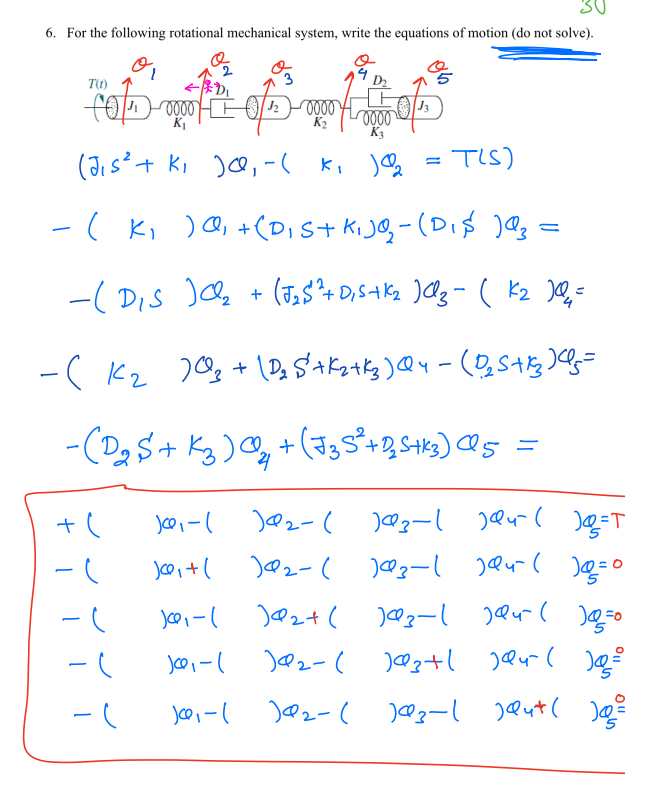 30
6. For the following rotational mechanical system, write the equations of motion (do not solve).
θ1 θ2 θ3 θ4 θ5
T(t) D1 D2
J1 J2 J3
K1 K2 K3
(J1S² + K1 )θ1 - ( K1 )θ2 = T(S)
- ( K1 )θ1 + (D1S + K1)θ2 - (D1S )θ3 =
- ( D1S )θ2 + (J2S² + D1S + K2 )θ3 - ( K2 )θ4 =
- ( K2 )θ3 + (D2S + K2 + K3)θ4 - (D2S + K3)θ5 =
- (D2S + K3)θ4 + (J3S² + D2S + K3)θ5 =
+ ( )θ1 - ( )θ2 - ( )θ3 - ( )θ4 - ( )θ5 = T
- ( )θ1 + ( )θ2 - ( )θ3 - ( )θ4 - ( )θ5 = 0
- ( )θ1 - ( )θ2 + ( )θ3 - ( )θ4 - ( )θ5 = 0
- ( )θ1 - ( )θ2 - ( )θ3 + ( )θ4 - ( )θ5 = 0
- ( )θ1 - ( )θ2 - ( )θ3 - ( )θ4 + ( )θ5 = 0